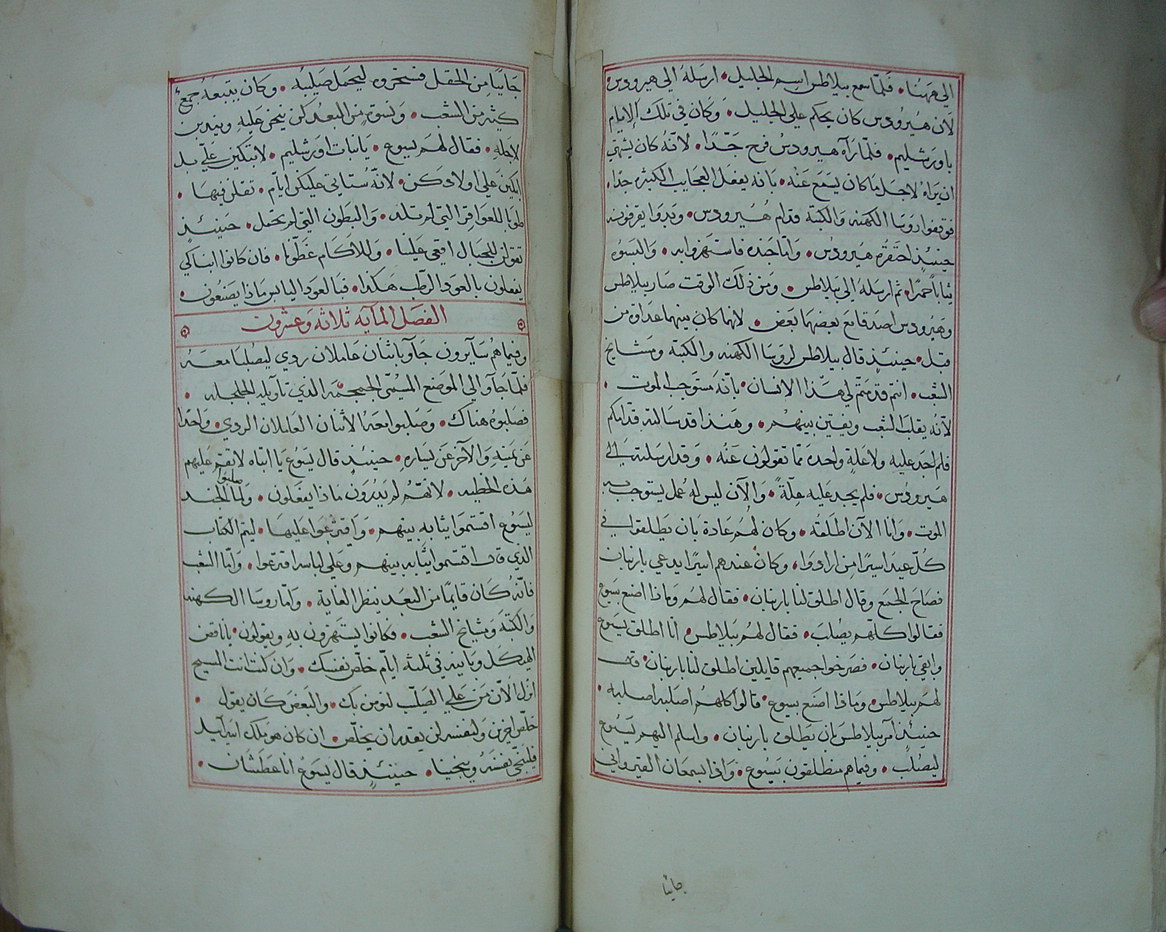 الى ههنا. فلما سمع بيلاطس اسم الجليل. ارسله الى هيرودس
لان هيرودس كان يحكم على الجليل. وكان في تلك الايام
باورشليم. فلما رآه هيرودس فرح جدًا. لانه كان يشتهي
ان يراه لاجل ما كان يسمع عنه. بانه يفعل العجايب الكثير جدا.
فوقفوا روسا الكهنه والكتبة قدام هيرودس. وبدوا يقرفونه
حينيذ احتقره هيرودس. واناجنده فاستهزوا به. والبسوه
ثيابًا حمرا. ثم ارسله الى بيلاطس. ومن ذلك الوقت صار بيلاطس
وهيرودس اصدقا مع بعضهما بعض. لانها كان بينهما عداوة من
قبل. حينيذ قال بيلاطس لروسا الكهنه والكتبة ومشايخ
الشعب. انتم قدمتم لي هذا الانسان. بانه مستوجب الموت.
لانه يقلب الشعب ويفتن بينهم. وهنذا قد سالته قدامكم
فلم اجد عليه ولا علة واحدة مما تقولون عنه. وقد ارسلته الى
هيرودس. فلم يجد عليه علةً. والآن ليس له عمل يستوجب به
الموت. وانا الآن اطلقه. وكان لهم عادة بان يطلقوا في
كل عيد اسيرًا من ارادوا. وكان عندهم اسيرًا يدعي بارنبان
فصاح الجميع وقال اطلق لنا بارنبان. فقال لهم وماذا اصنع بيسوع
فقالوا كلهم يصلب. فقال لهم بيلاطس. انا اطلق يسوع
وابقي بارنبان. فصرخوا جميعهم قايلين اطلق لنا بارنبان. قال
لهم بيلاطس. وماذا اصنع بيسوع. قالوا كلهم اصلبه اصلبه.
حينيذ آمر بيلاطس بان يطلق بارنبان. واسلم اليهم يسوع
ليصلب. وفيما هم منطلقون بيسوع. واذا بسمعان القيرواني
جاييا
جاييًا من الحقل فسخروه ليحمل صليبه. وكان يتبعه جمع
كثير من الشعب. ونسوة من البعد كن ينحن عليه ويندبن
لاجله. فقال لهم يسوع. يا بنات اورشليم. لا تبكين علي بل
ابكين على اولادكن. لانه ستاتي عليكن ايام. تقلن فيها.
طوبا للعواقر التي لم تلد. والبطون التي لم تحمل. حينيذٍ
تقولن للجبال اقعي علينا. وللاكام غطونا. فان كانوا
يفعلون بالعود الرطب هكذا. فبالعود اليابس ماذا يصنعون.
الفصل المايه ثلاثه وعشرون
وفيما هم سآيرون جاوا باثنان عاملان ردي ليصلبا معه
فلما جاوا الى الموضع المسمى الجمجمه الذي تاويله الجلجله.
فصلبوه هناك. وصلبوا معه الاثنان العاملان الردي. واحدًا
عن يمينه والآخر عن يساره. حينيذ قال يسوع يا ابتاه لا تقم عليهم
هذه الخطيه. لانهم لم يدرون ماذا يفعلون. ولما صلبوا الجند
ليسوع اقتسموا ثيابه بينهم. واقترعوا عليها. ليتم الكتاب
الذي قال اقتسموا ثيابه بينهم وعلى لباسه اقترعوا. واما الشعب
فانه كان قايمًا من البعد ينظر الغاية. واما روسا الكهنه
والكتبة ومشايخ الشعب. فكانوا يستهزون به ويقولون. يا ناقض
الهيكل وبانيه في ثلثة ايام خلص نفسك. وان كنت انت المسيح
انزل الآن من على الصلب لنومن بك. والبعض كان يقول.
خلص اخرين ونفسه لن يقدر ان يخلص. ان كان هو ملك اسرآيل
فلينجي نفسه وينجينا. حينيذٍ قال يسوع انا عطشان.